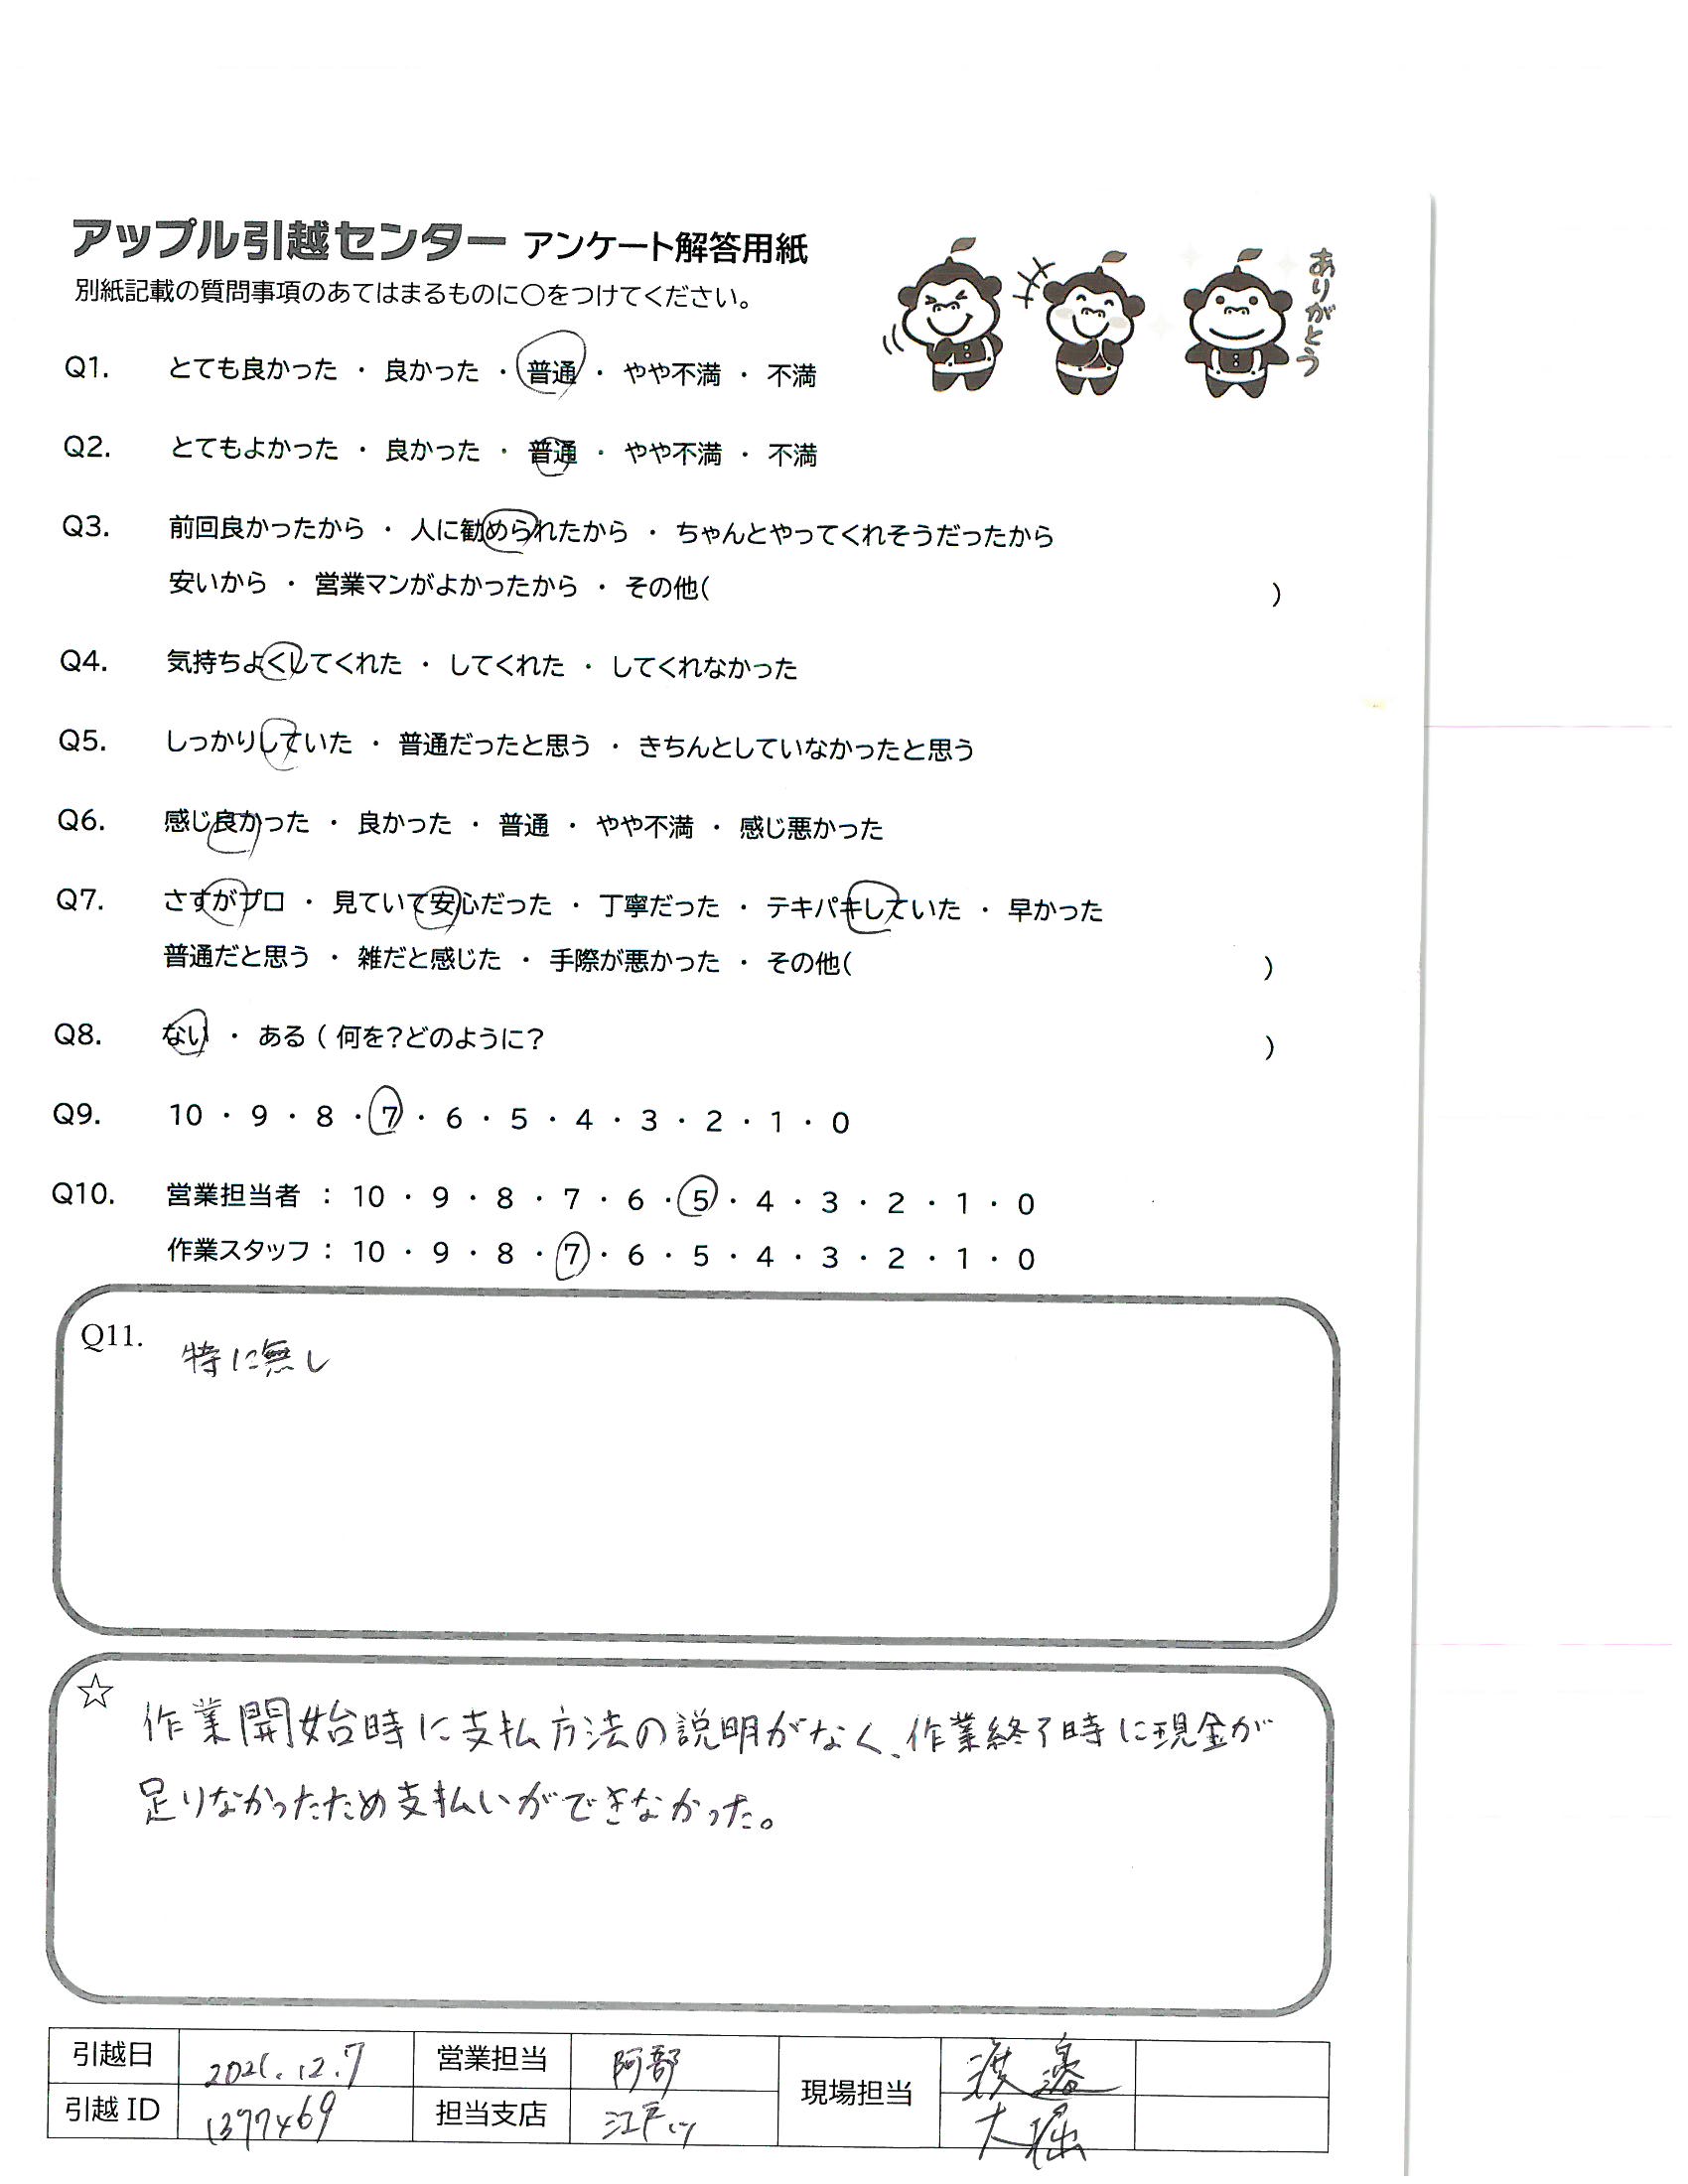 アップル引越センター アンケート解答用紙
別紙記載の質問事項のあてはまるものに〇をつけてください。
ありがとう
Q1. とても良かった ・ 良かった ・ 普通 ・ やや不満 ・ 不満
Q2. とてもよかった ・ 良かった ・ 普通 ・ やや不満 ・ 不満
Q3. 前回良かったから ・ 人に勧められたから ・ ちゃんとやってくれそうだったから
安いから ・ 営業マンがよかったから ・ その他( )
Q4. 気持ちよくしてくれた ・ してくれた ・ してくれなかった
Q5. しっかりしていた ・ 普通だったと思う ・ きちんとしていなかったと思う
Q6. 感じ良かった ・ 良かった ・ 普通 ・ やや不満 ・ 感じ悪かった
Q7. さすがプロ ・ 見ていて安心だった ・ 丁寧だった ・ テキパキしていた ・ 早かった
普通だと思う ・ 雑だと感じた ・ 手際が悪かった ・ その他( )
Q8. ない ・ ある ( 何を?どのように? )
Q9. 10 ・ 9 ・ 8 ・ 7 ・ 6 ・ 5 ・ 4 ・ 3 ・ 2 ・ 1 ・ 0
Q10. 営業担当者 : 10 ・ 9 ・ 8 ・ 7 ・ 6 ・ 5 ・ 4 ・ 3 ・ 2 ・ 1 ・ 0
作業スタッフ : 10 ・ 9 ・ 8 ・ 7 ・ 6 ・ 5 ・ 4 ・ 3 ・ 2 ・ 1 ・ 0
Q11. 特に無し
☆ 作業開始時に支払方法の説明がなく、作業終了時に現金が
足りなかったため支払いができなかった。
引越日 2021.12.7 営業担当 阿部 現場担当 渡邉
引越ID 1377469 担当支店 江戸川 大堀